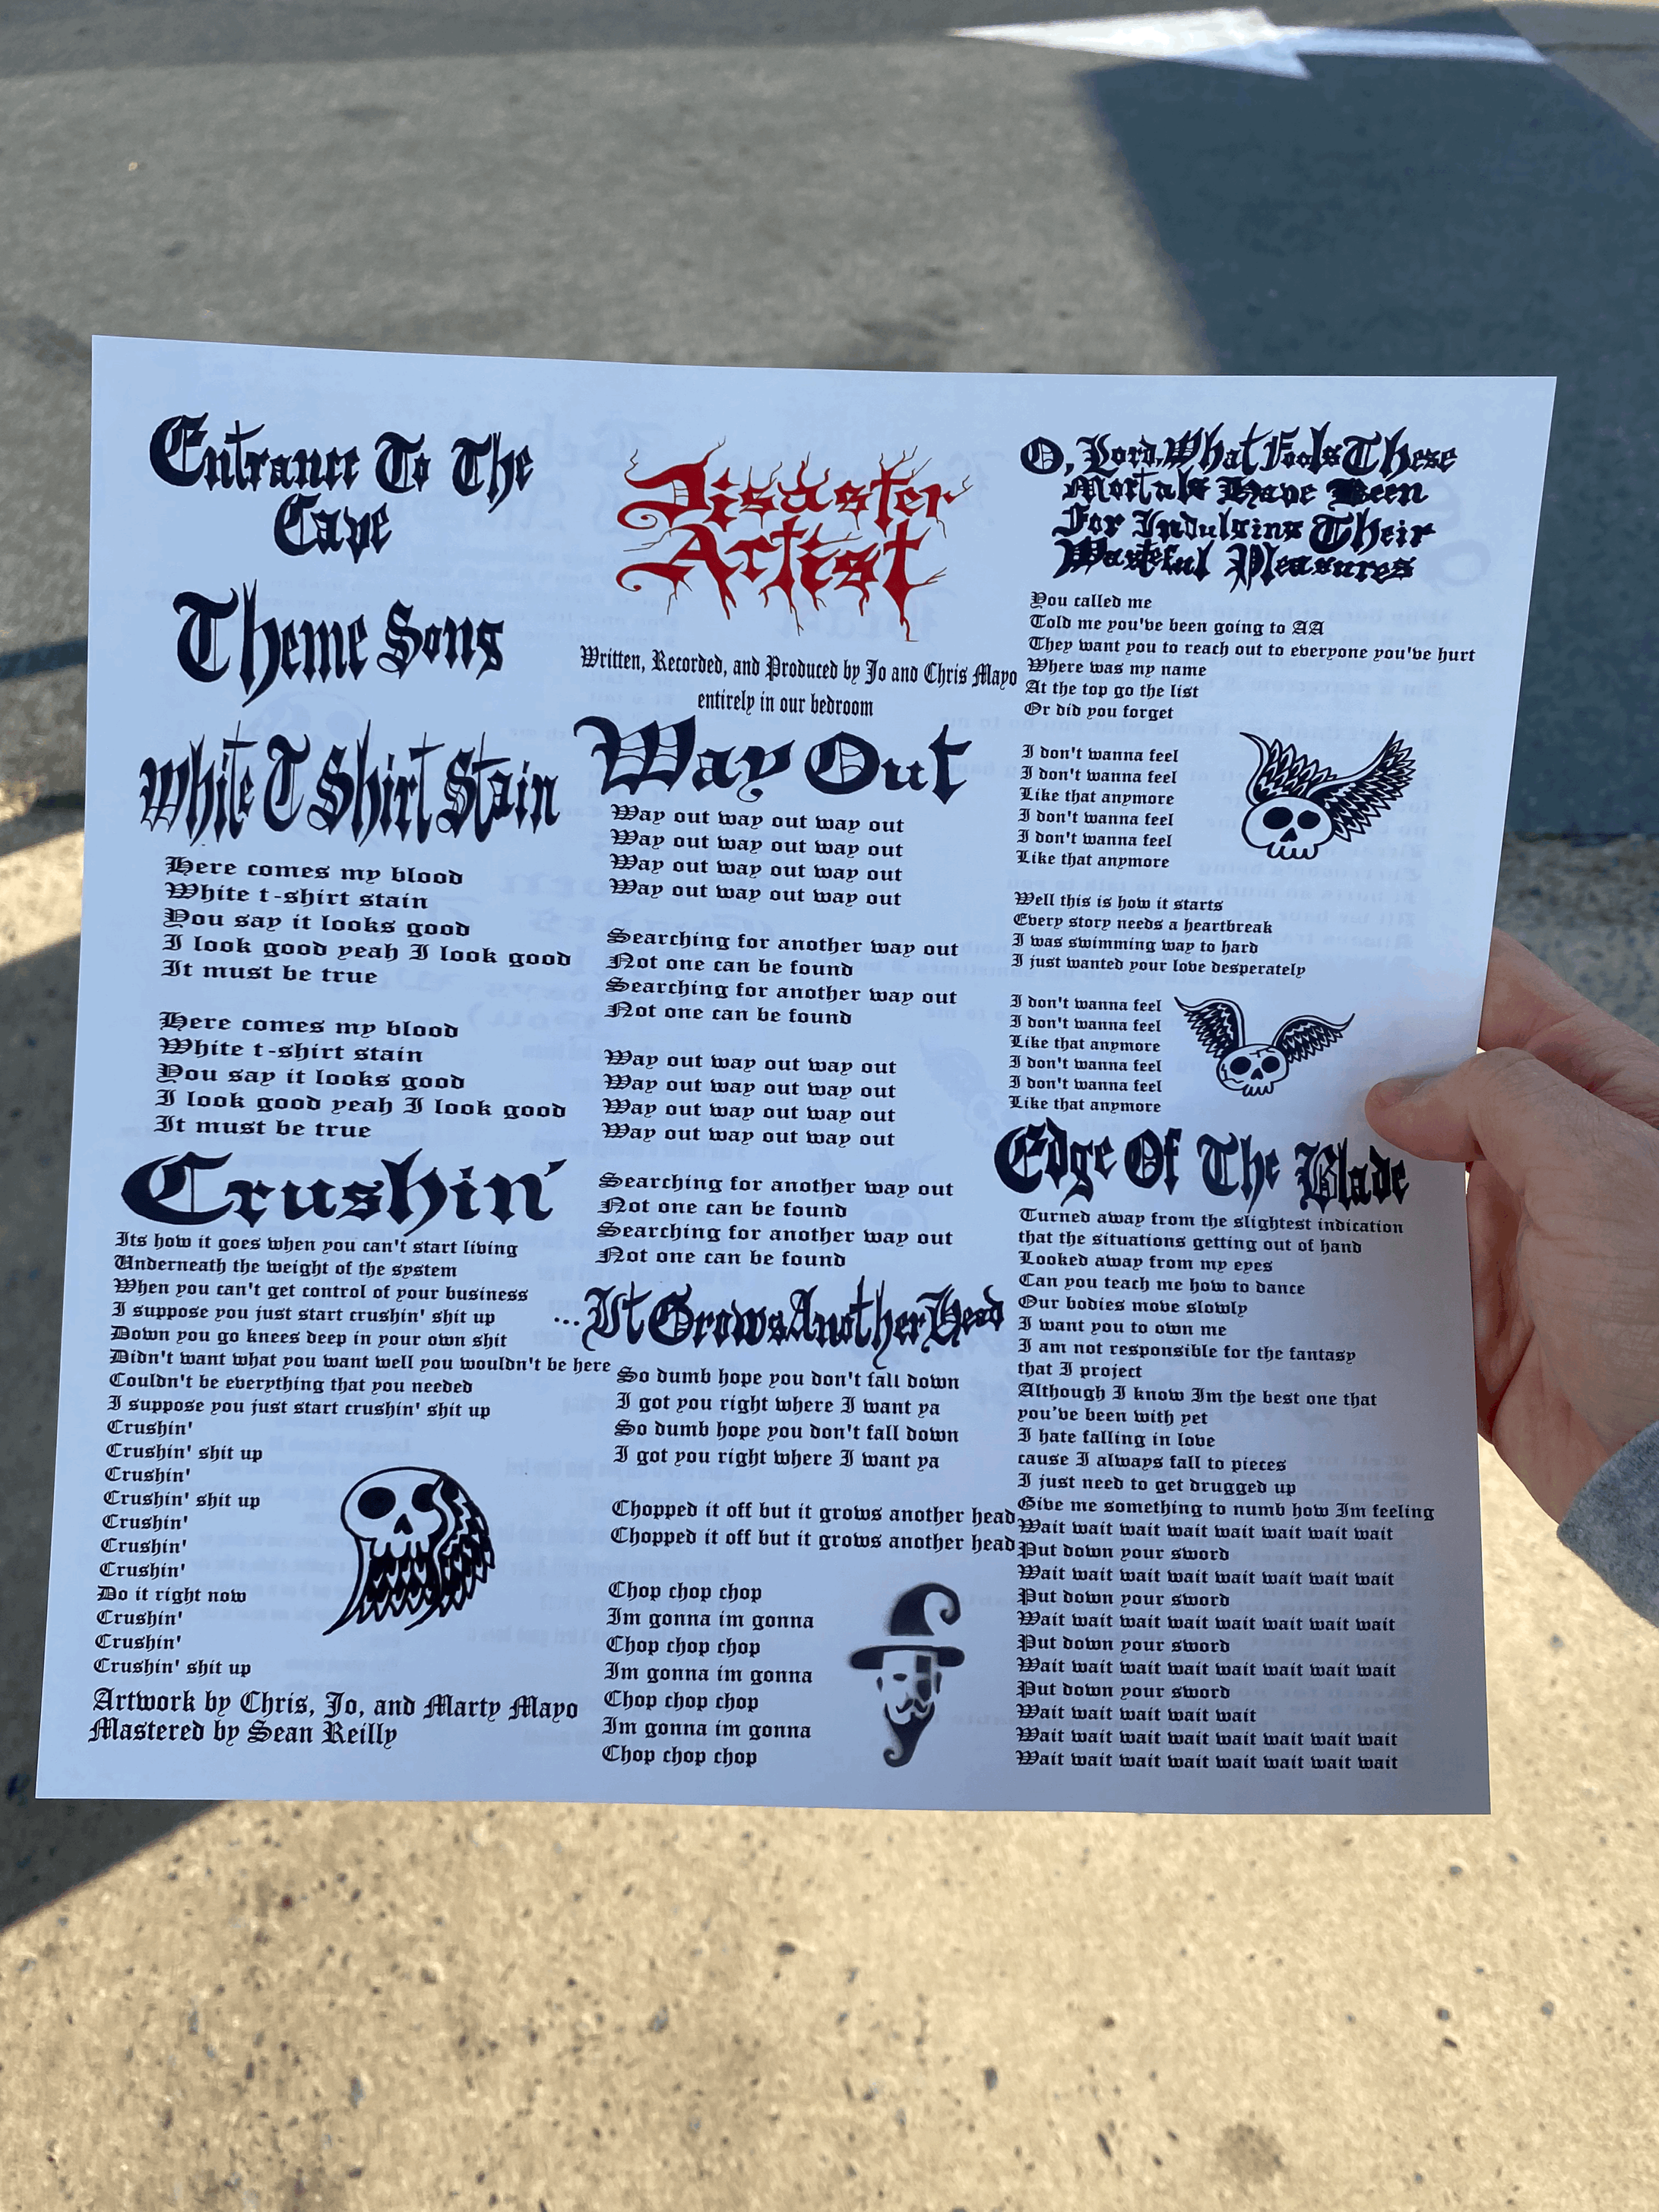 Entrance To The
Cave
Theme Song
White T Shirt Stain
Here comes my blood
White t-shirt stain
You say it looks good
I look good yeah I look good
It must be true
Here comes my blood
White t-shirt stain
You say it looks good
I look good yeah I look good
It must be true
Crushin'
Its how it goes when you can't start living
Underneath the weight of the system
When you can't get control of your business
I suppose you just start crushin' shit up
Down you go knees deep in your own shit
Didn't want what you want well you wouldn't be here
Couldn't be everything that you needed
I suppose you just start crushin' shit up
Crushin'
Crushin' shit up
Crushin'
Crushin' shit up
Crushin'
Crushin'
Crushin'
Do it right now
Crushin'
Crushin'
Crushin' shit up
Artwork by Chris, Jo, and Marty Mayo
Mastered by Sean Reilly
Disaster
Artist
Written, Recorded, and Produced by Jo and Chris Mayo
entirely in our bedroom
Way Out
Way out way out way out
Way out way out way out
Way out way out way out
Way out way out way out
Searching for another way out
Not one can be found
Searching for another way out
Not one can be found
Way out way out way out
Way out way out way out
Way out way out way out
Way out way out way out
Searching for another way out
Not one can be found
Searching for another way out
Not one can be found
...It Grows Another Head
So dumb hope you don't fall down
I got you right where I want ya
So dumb hope you don't fall down
I got you right where I want ya
Chopped it off but it grows another head
Chopped it off but it grows another head
Chop chop chop
Im gonna im gonna
Chop chop chop
Im gonna im gonna
Chop chop chop
Im gonna im gonna
Chop chop chop
O, Lord, What Fools These
Mortals Have Been
For Indulging Their
Wasteful Pleasures
You called me
Told me you've been going to AA
They want you to reach out to everyone you've hurt
Where was my name
At the top go the list
Or did you forget
I don't wanna feel
I don't wanna feel
Like that anymore
I don't wanna feel
I don't wanna feel
Like that anymore
Well this is how it starts
Every story needs a heartbreak
I was swimming way to hard
I just wanted your love desperately
I don't wanna feel
I don't wanna feel
Like that anymore
I don't wanna feel
I don't wanna feel
Like that anymore
Edge Of The Blade
Turned away from the slightest indication
that the situations getting out of hand
Looked away from my eyes
Can you teach me how to dance
Our bodies move slowly
I want you to own me
I am not responsible for the fantasy
that I project
Although I know Im the best one that
you've been with yet
I hate falling in love
cause I always fall to pieces
I just need to get drugged up
Give me something to numb how Im feeling
Wait wait wait wait wait wait wait wait
Put down your sword
Wait wait wait wait wait wait wait wait
Put down your sword
Wait wait wait wait wait wait wait wait
Put down your sword
Wait wait wait wait wait wait wait wait
Put down your sword
Wait wait wait wait wait
Wait wait wait wait wait wait wait wait
Wait wait wait wait wait wait wait wait